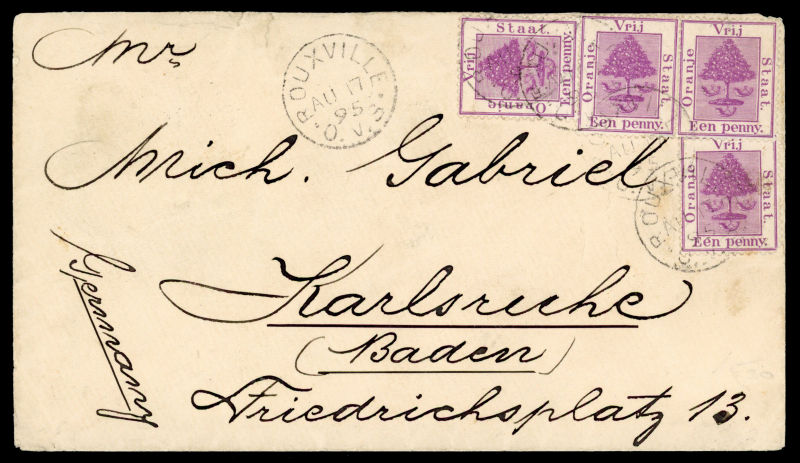 Mr
ROUXVILLE.
AU 17
95
O.V.S.
Staat.
Vrij
Een penny.
Oranje
Vrij
Oranje
Staat.
Een penny.
Vrij
Oranje
Staat.
Een penny.
Vrij
Oranje
Staat.
Een penny.
Mich. Gabriel
Karlsruhe
(Baden)
Friedrichsplatz 13.
Germany